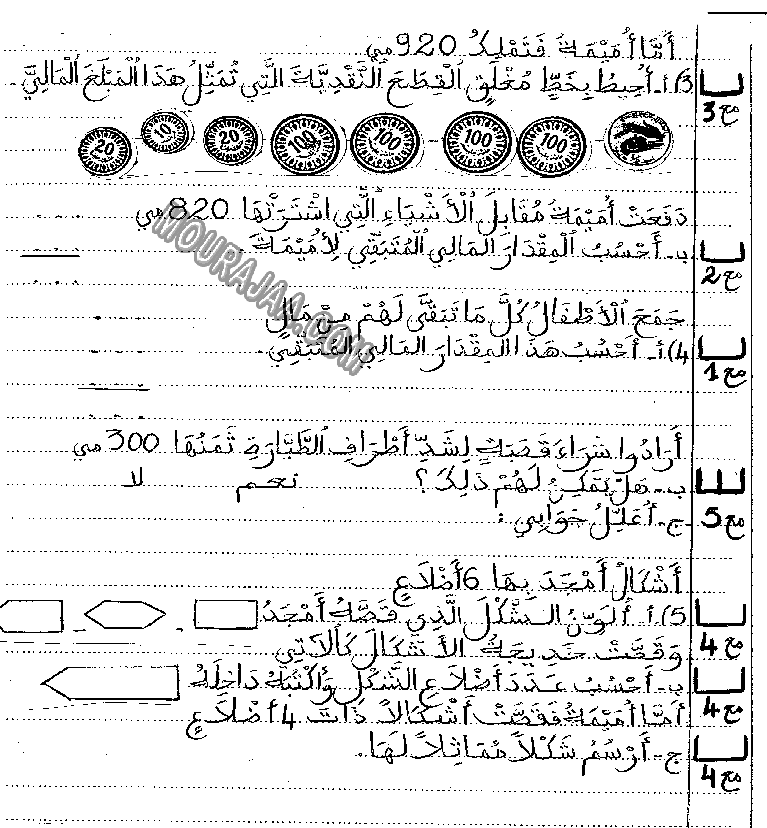 أَمَّا أُمَيْمَةُ فَتَمْلِكُ 920 مي.
3) أ- أُحِيطُ بِخَطٍّ مُغْلَقٍ الْقِطَعَ النَّقْدِيَّةَ الَّتِي تُمَثِّلُ هَذَا الْمَبْلَغَ الْمَالِيَّ.
مع 3
20 10 20 100 100 100 100
دَفَعَتْ أُمَيْمَةُ مُقَابِلَ الْأَشْيَاءِ الَّتِي اشْتَرَتْهَا 820 مي
ب- أَحْسُبُ الْمِقْدَارَ الْمَالِي الْمُتَبَقِّي لِأُمَيْمَةَ.
مع 2
MOURAJAA.COM
جَمَعَ الْأَطْفَالُ كُلَّ مَا تَبَقَّى لَهُمْ مِنْ مَالٍ
4) أ- أَحْسُبُ هَذَا المِقْدَارَ المَالِي المُتَبَقِّي.
مع 1
أَرَادُوا شِرَاءَ قَصَبَةٍ لِشَدِّ أَطْرَافِ الطَّيَّارَةِ ثَمَنُهَا 300 مي
ب- هَلْ يُمْكِنُ لَهُمْ ذَلِكَ؟ نعم لا
ج- أُعَلِّلُ جَوَابِي:
مع 5
أَشْكَالُ أَمْجَدَ بِهَا 6 أَضْلَاعٍ
5) أ- أُلَوِّنُ الشَّكْلَ الَّذِي قَصَّهُ أَمْجَدُ
مع 4
وَقَصَّتْ خَدِيجَةُ الأَشْكَالَ كَالآتِي
ب- أَحْسُبُ عَدَدَ أَضْلَاعِ الشَّكْلِ وَأَكْتُبُهُ دَاخِلَهُ
مع 4
أَمَّا أُمَيْمَةُ فَقَصَّتْ أَشْكَالاً ذَاتَ 4 أَضْلَاعٍ
ج- أَرْسُمُ شَكْلاً مُمَاثِلاً لَهَا.
مع 4